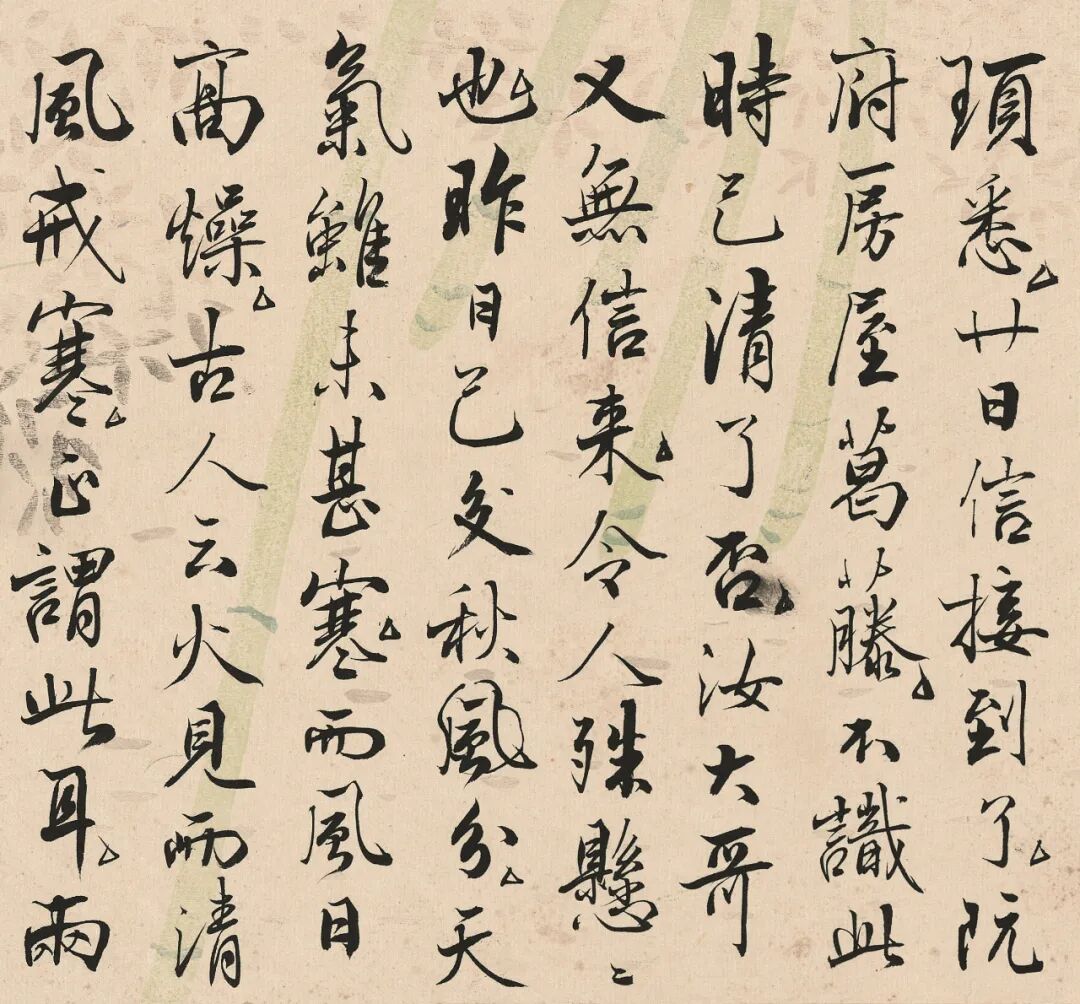 頊悉廿日信接到了阮
府房屋葛藤不識此
時已清了否汝大哥
又無信来令人殊懸〻
也昨日已交秋風分天
氣雖未甚寒而風日
高燥古人云火見而清
風戒寒正謂此耳兩